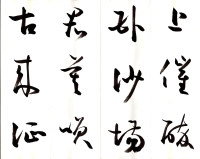 上催醉
卧沙場
君莫咲
古来征